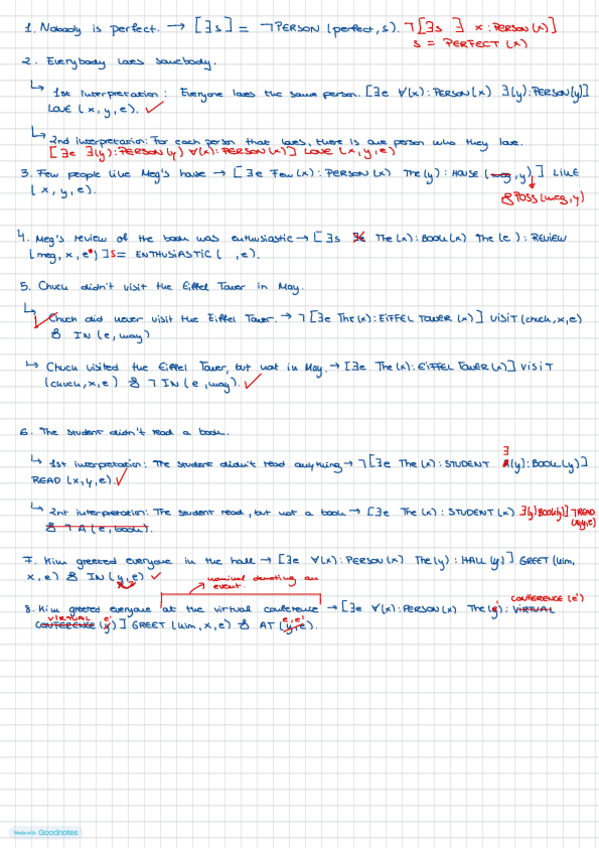 1. Nobody is perfect. → [∃s] = ¬PERSON (perfect, s). ¬[∃s ] x : PERSON (x)]
s = PERFECT (x)
2. Everybody loves somebody.
↳ 1st interpretation : Everyone loves the same person. [∃e ∀(x) : PERSON (x) ∃(y) : PERSON (y)]
LOVE ( x, y, e). ✓
↳ 2nd interpretation: For each person that loves, there is one person who they love.
[∃e ∃(y) : PERSON (y) ∀(x) : PERSON (x)] LOVE (x, y, e)
3. Few people like Meg's house → [ ∃e Few (x) : PERSON (x) The (y) : HOUSE (meg, y) ] LIKE
( x, y, e). & POSS (meg, y)
4. Meg's review of the book was enthusiastic → [ ∃s ∃e The (x) : BOOK (x) The (e) : REVIEW
(meg, x, e) ] s = ENTHUSIASTIC ( , e).
5. Chuck didn't visit the Eiffel Tower in May.
↳ Chuck did never visit the Eiffel Tower. → ¬ [∃e The (x) : EIFFEL TOWER (x) ] VISIT (chuck, x, e)
& IN ( e, may)
↳ Chuck visited the Eiffel Tower, but not in May. → [∃e The (x) : EIFFEL TOWER (x) ] VISIT
(chuck, x, e) & ¬ IN ( e, may). ✓
6. The student didn't read a book.
↳ 1st interpretation: The student didn't read anything → ¬ [∃e The (x) : STUDENT ∃ A(y) : BOOK (y) ]
READ (x, y, e). ✓
↳ 2nt interpretation: The student read, but not a book → [∃e The (x) : STUDENT (x) ∃(y) BOOK(y)] ¬READ (x,y,e)
& ¬ A ( e, book).
7. Kim greeted everyone in the hall → [ ∃e ∀(x) : PERSON (x) The (y) : HALL (y) ] GREET (kim,
x, e) & IN (y, e) ✓
nominal denoting an event.
8. Kim greeted everyone at the virtual conference → [∃e ∀(x) : PERSON (x) The (e') : VIRTUAL CONFERENCE (e')
VIRTUAL CONFERENCE (y) e' ] GREET (kim, x, e) & AT (y, e). e, e'
Made with Goodnotes